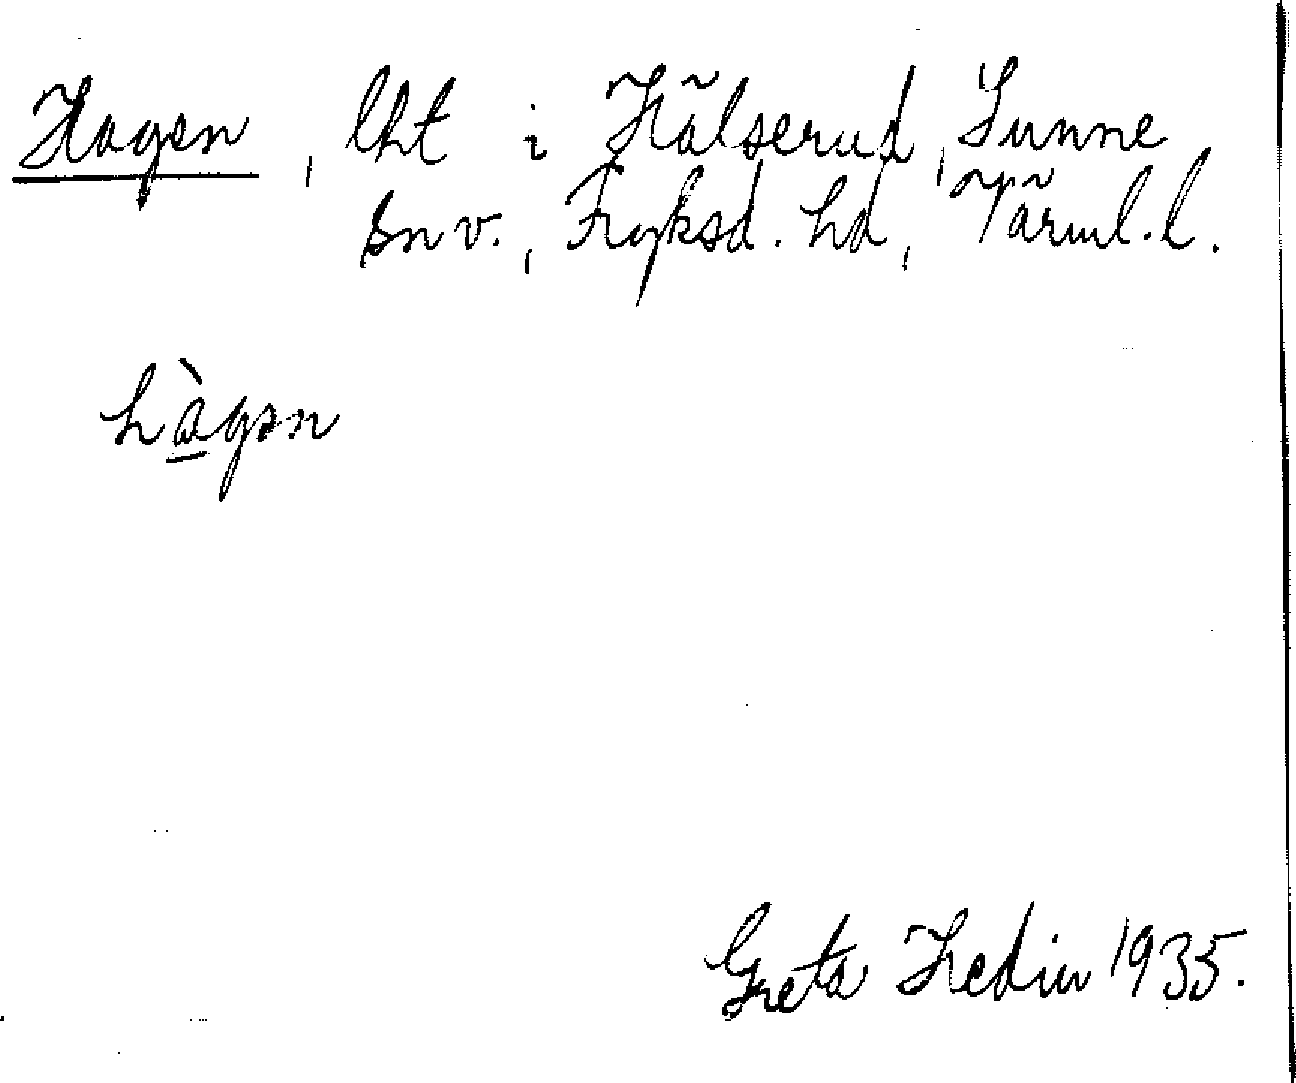 Hagen, lht i Hälserud, Sunne
sn v., Fryksd. hd, Värml. l.
hàgən
Greta Hedin 1935.